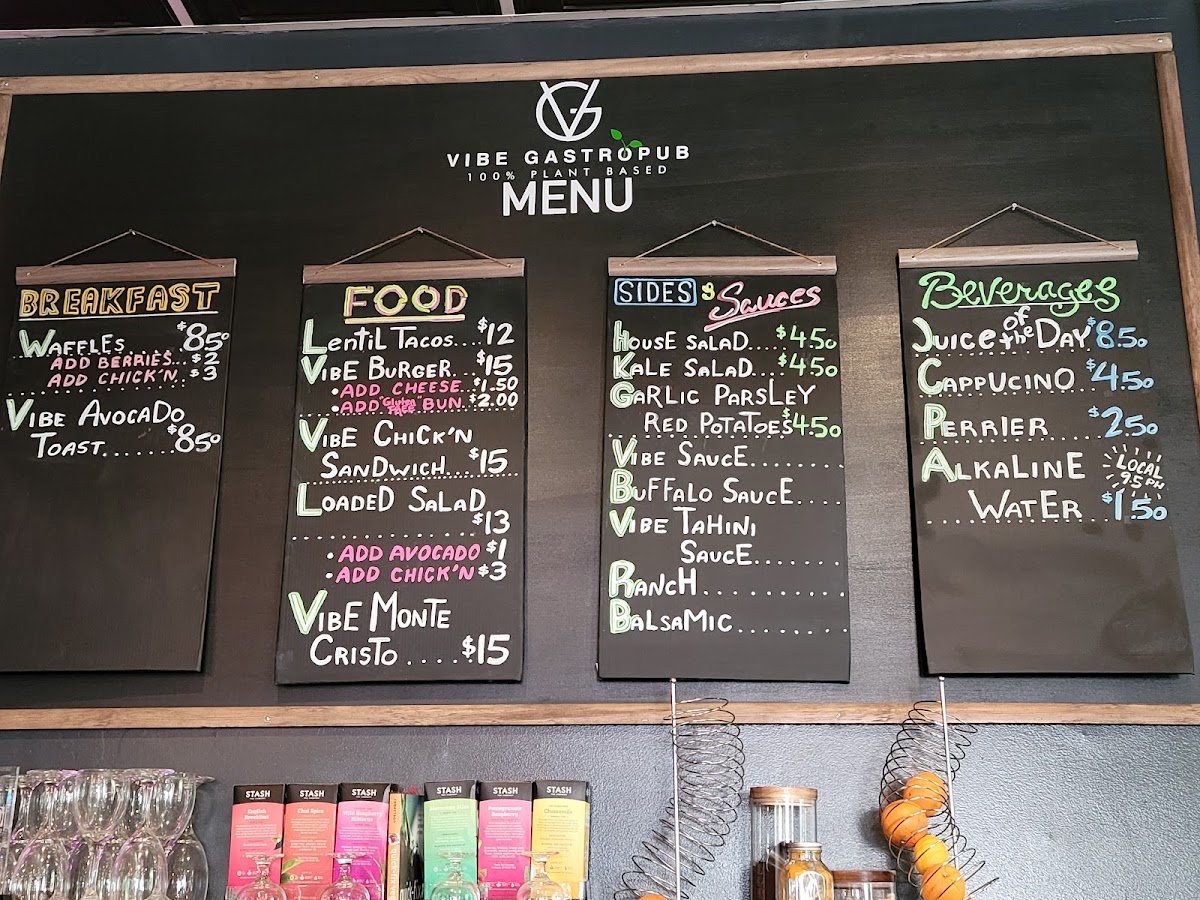 VIBE GASTROPUB
100% PLANT BASED
MENU
BREAKFAST
WAFFLES...$8.50
ADD BERRIES...$2
ADD CHICK'N..$3
VIBE AVOCADO
TOAST.......$8.50
FOOD
LENTIL TACOS...$12
VIBE BURGER...$15
•ADD CHEESE...$1.50
•ADD "Gluten FREE" BUN.$2.00
VIBE CHICK'N
SANDWICH...$15
LOADED SALAD
$13
•ADD AVOCADO $1
•ADD CHICK'N $3
VIBE MONTE
CRISTO....$15
SIDES & Sauces
HOUSE SALAD...$4.50
KALE SALAD...$4.50
GARLIC PARSLEY
RED POTATOES $4.50
VIBE SAUCE.......
BUFFALO SAUCE....
VIBE TAHINI
SAUCE.......
RANCH..........
BALSAMIC.........
Beverages
JUICE of the DAY $8.50
CAPPUCINO..$4.50
PERRIER....$2.50
ALKALINE LOCAL 9.5 PH
WATER $1.50
STASH
English Breakfast
STASH
Chai Spice
STASH
Wild Raspberry Hibiscus
STASH
STASH
Pomegranate Raspberry
STASH
Chamomile